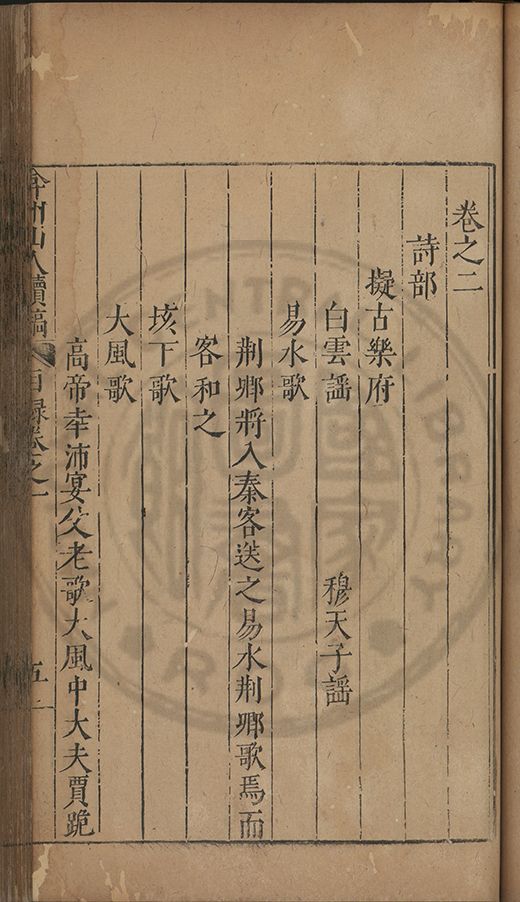 卷之二
詩部
擬古樂府
白雲謡 穆天子謡
易水歌
荆卿將入秦客送之易水荆卿歌焉而
客和之
垓下歌
大風歌
高帝幸沛宴父老歌大風中大夫賈跪
弇州山人續稿 目録卷之一 五